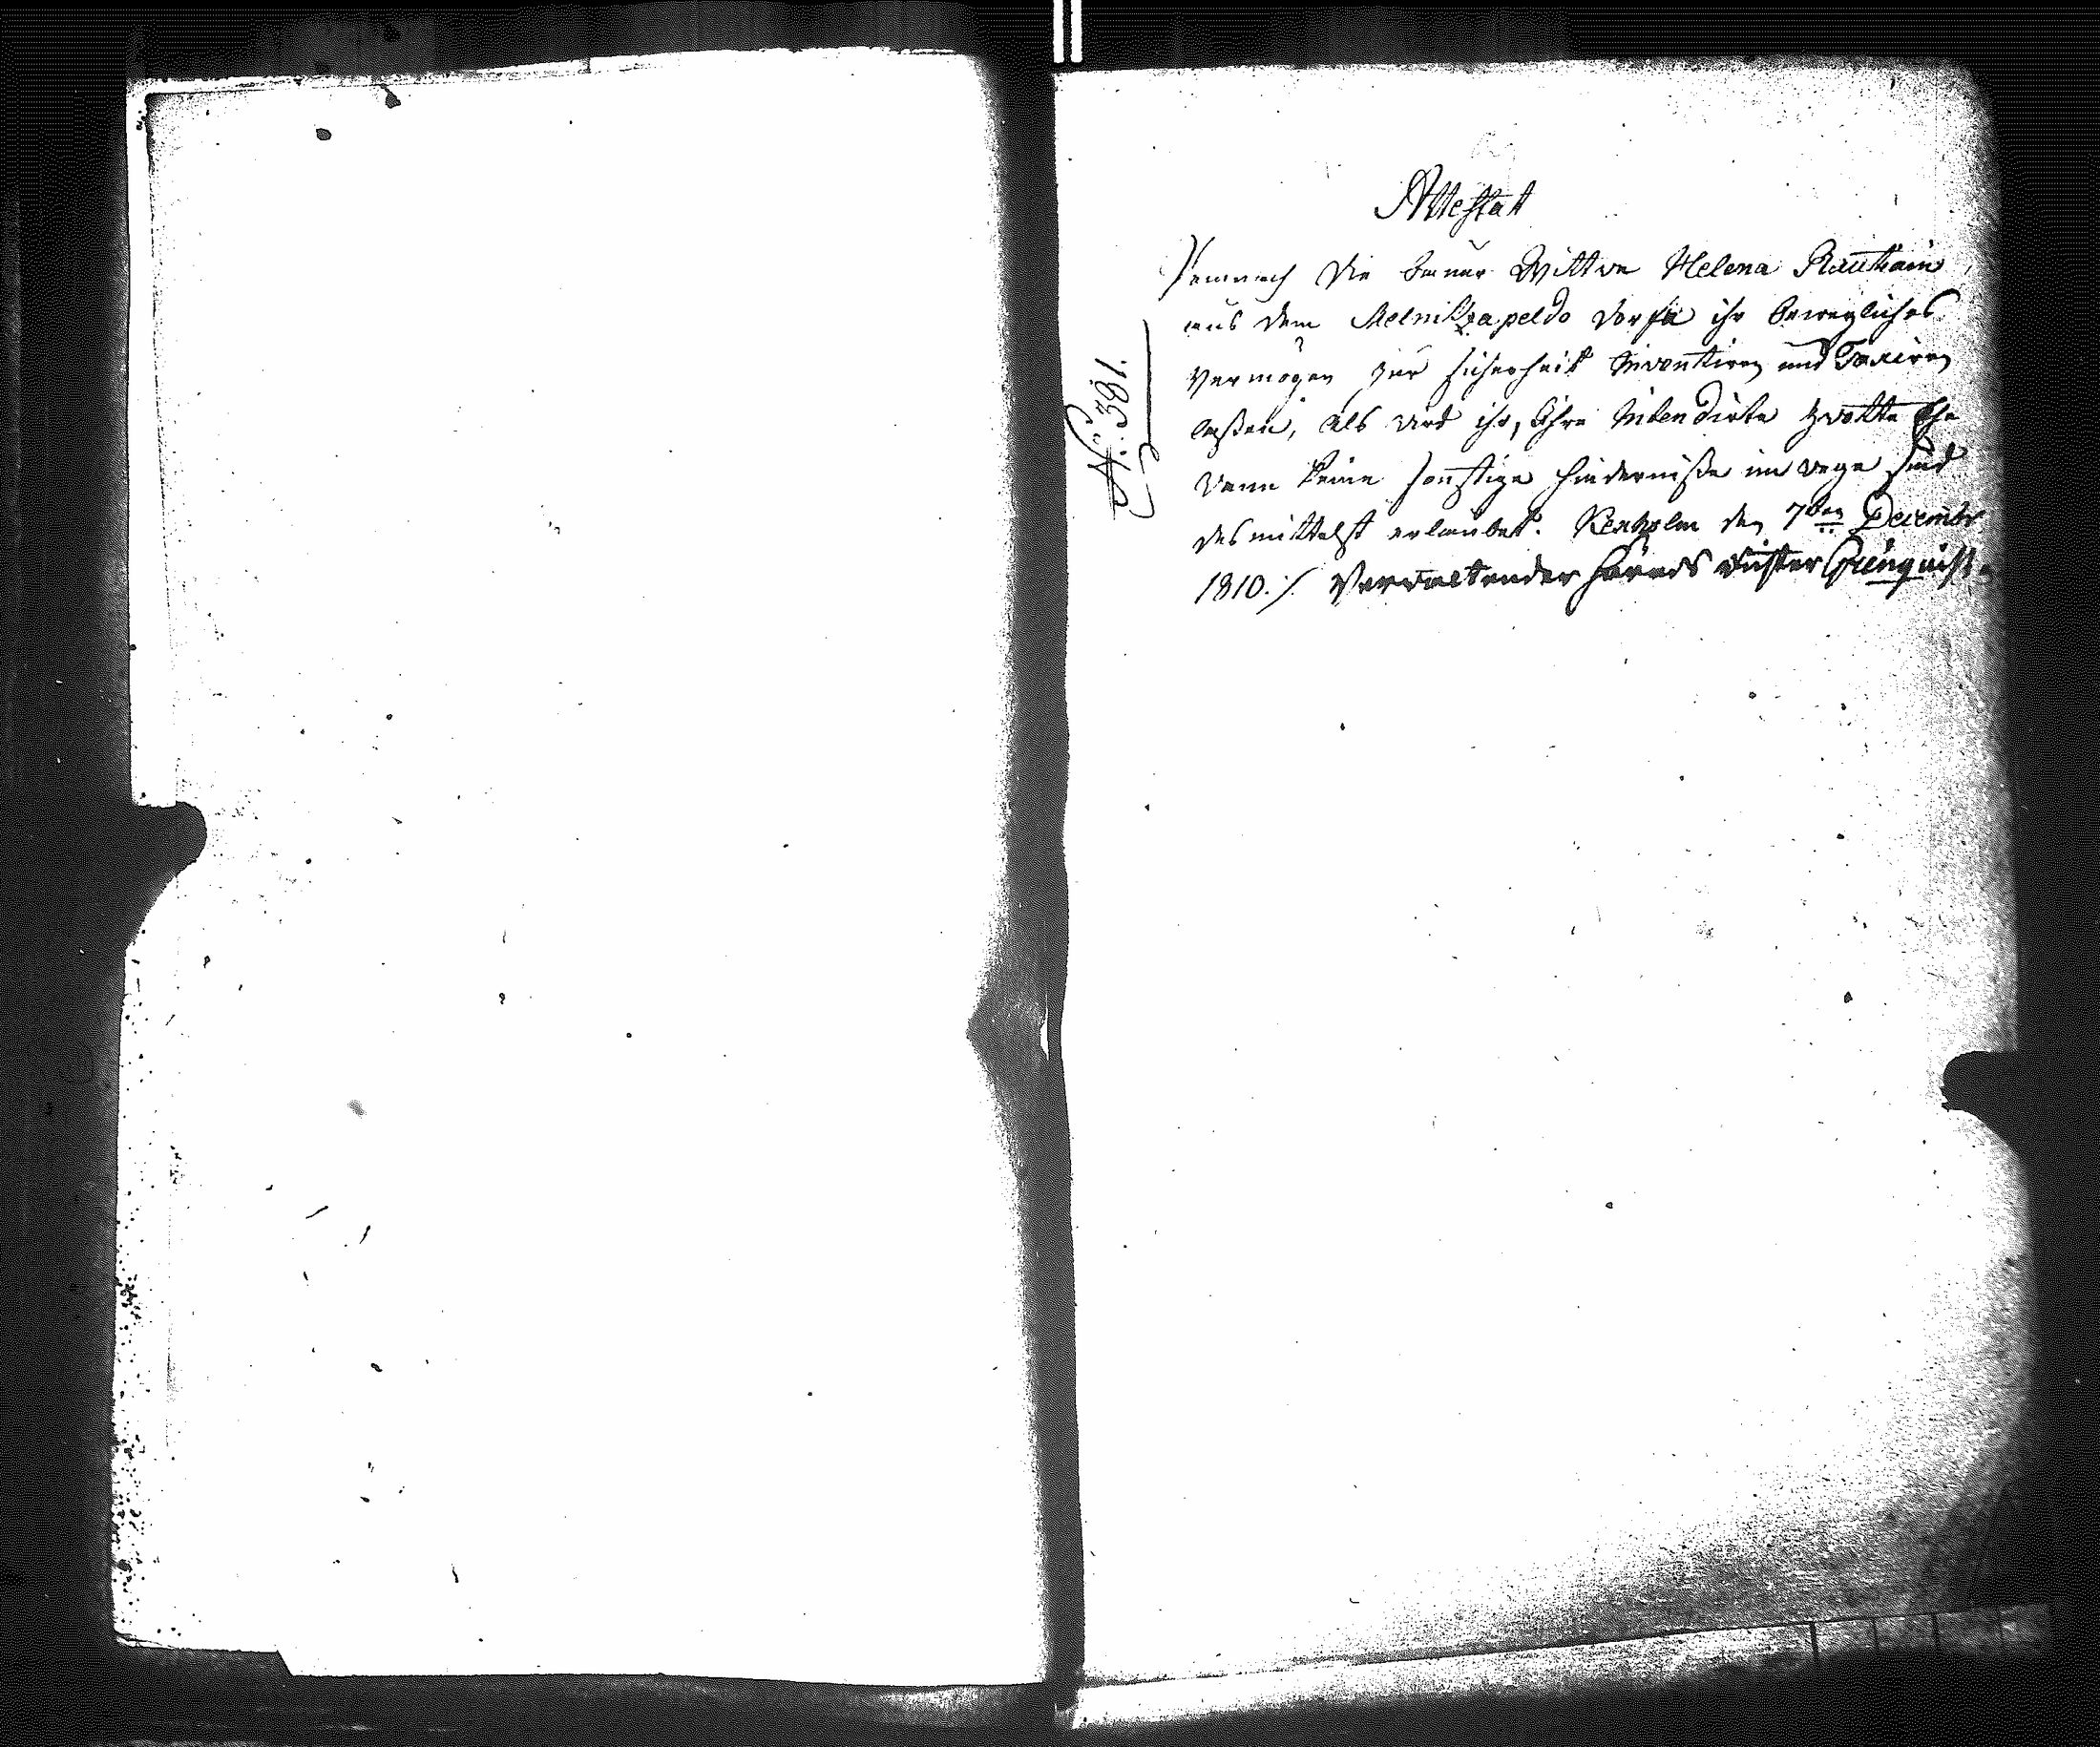 Attestat
Demnach die bauer Wittwe Helena Rautiain
aus dem Melnitzapeldo dorfe ihr bewegliches
Vermögen zur sicherheit Inventiren und Taxiren
laßen, als wird ihr, Ihre Intendirte zwotte Ehe
wenn keine sonstige hinderniße im wege sind
desmittelst erlaubet. Kexholm den 7ten Decembr
1810. /. Verwaltender härads Richter
N: 381.